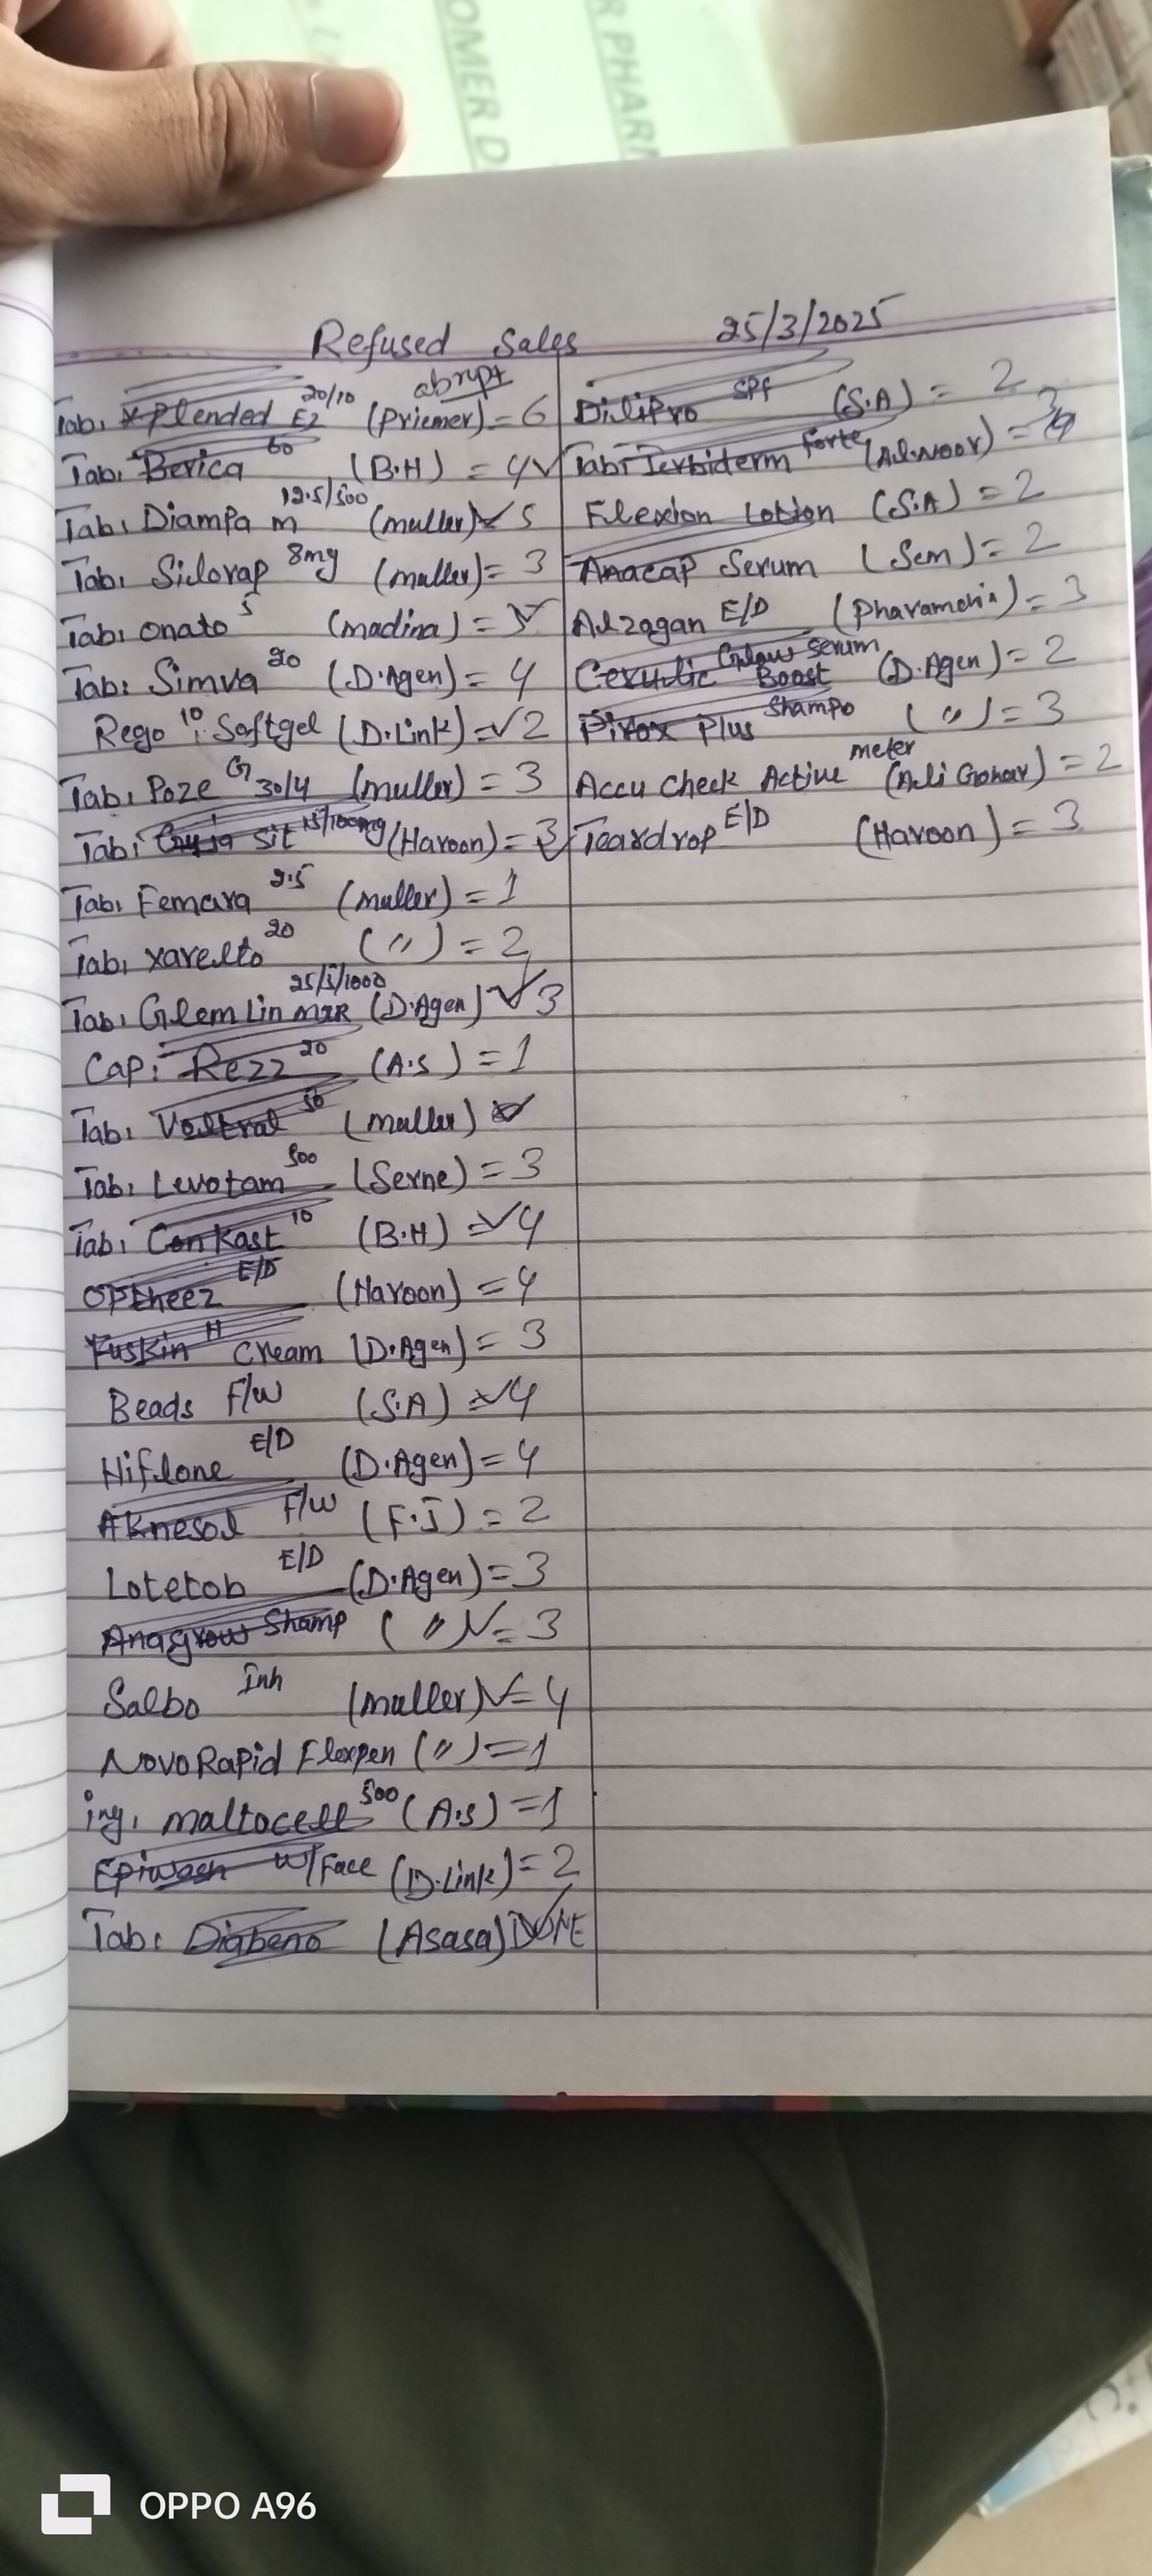 OMER D
R PHARM
Refused Sales 25/3/2025
Tab. Xplended EZ 20/10 (Priemer) = 6
Tab: Berica 60 (B.H) = 4 ✓
Tab: Diampa m 12.5/500 (muller) ✓ 5
Tab: Silorap 8mg (muller) = 3
Tab: onato 5 (madina) =
Tab: Simva 20 (D.Agen) = 4
Rego 10 Softgel (D.Link) = ✓ 2
Tab: Poze G 30/4 (muller) = 3
Tab: Sit 15/100mg (Haroon) = 3 ✓
Tab: Femara 2.5 (muller) = 1
Tab: xarelto 20 (〃) = 2
Tab: GlemLin MXR 25/5/1000 (D.Agen) ✓ 3
Cap: Rezz 20 (A.S) = 1
Tab: Voltral 50 (muller) ✓
Tab: Levotam 500 (Serne) = 3
Tab: Conkast 10 (B.H) = ✓ 4
OPtheez E/D (Haroon) = 4
Fuskin H Cream (D.Agen) = 3
Beads F/W (S.A) = ✓ 4
Hiflone E/D (D.Agen) = 4
AKnesol F/W (F.J) = 2
Lotetob E/D (D.Agen) = 3
Anagrow Shamp (〃) ✓ = 3
Salbo Inh (muller) ✓ = 4
NovoRapid Flexpen (〃) = 1
inj. maltocell 500 (A.S) = 1
Epiwash W/Face (D.Link) = 2
Tab: Diabeno (Asasa) DONE
DiliPro SPF (S.A) = 2
Tab: Terbiderm Forte (Al.Noor) = 3
Flexion Lotion (S.A) = 2
Anacap Serum (Sem) = 2
Alzagan E/D = 3
Glow Serum Boost (D.Agen) = 2
Pirox Plus Shampo (〃) = 3
Accu Check Active meter (Ali Gohar) = 2
Teardrop E/D (Haroon) = 3
OPPO A96